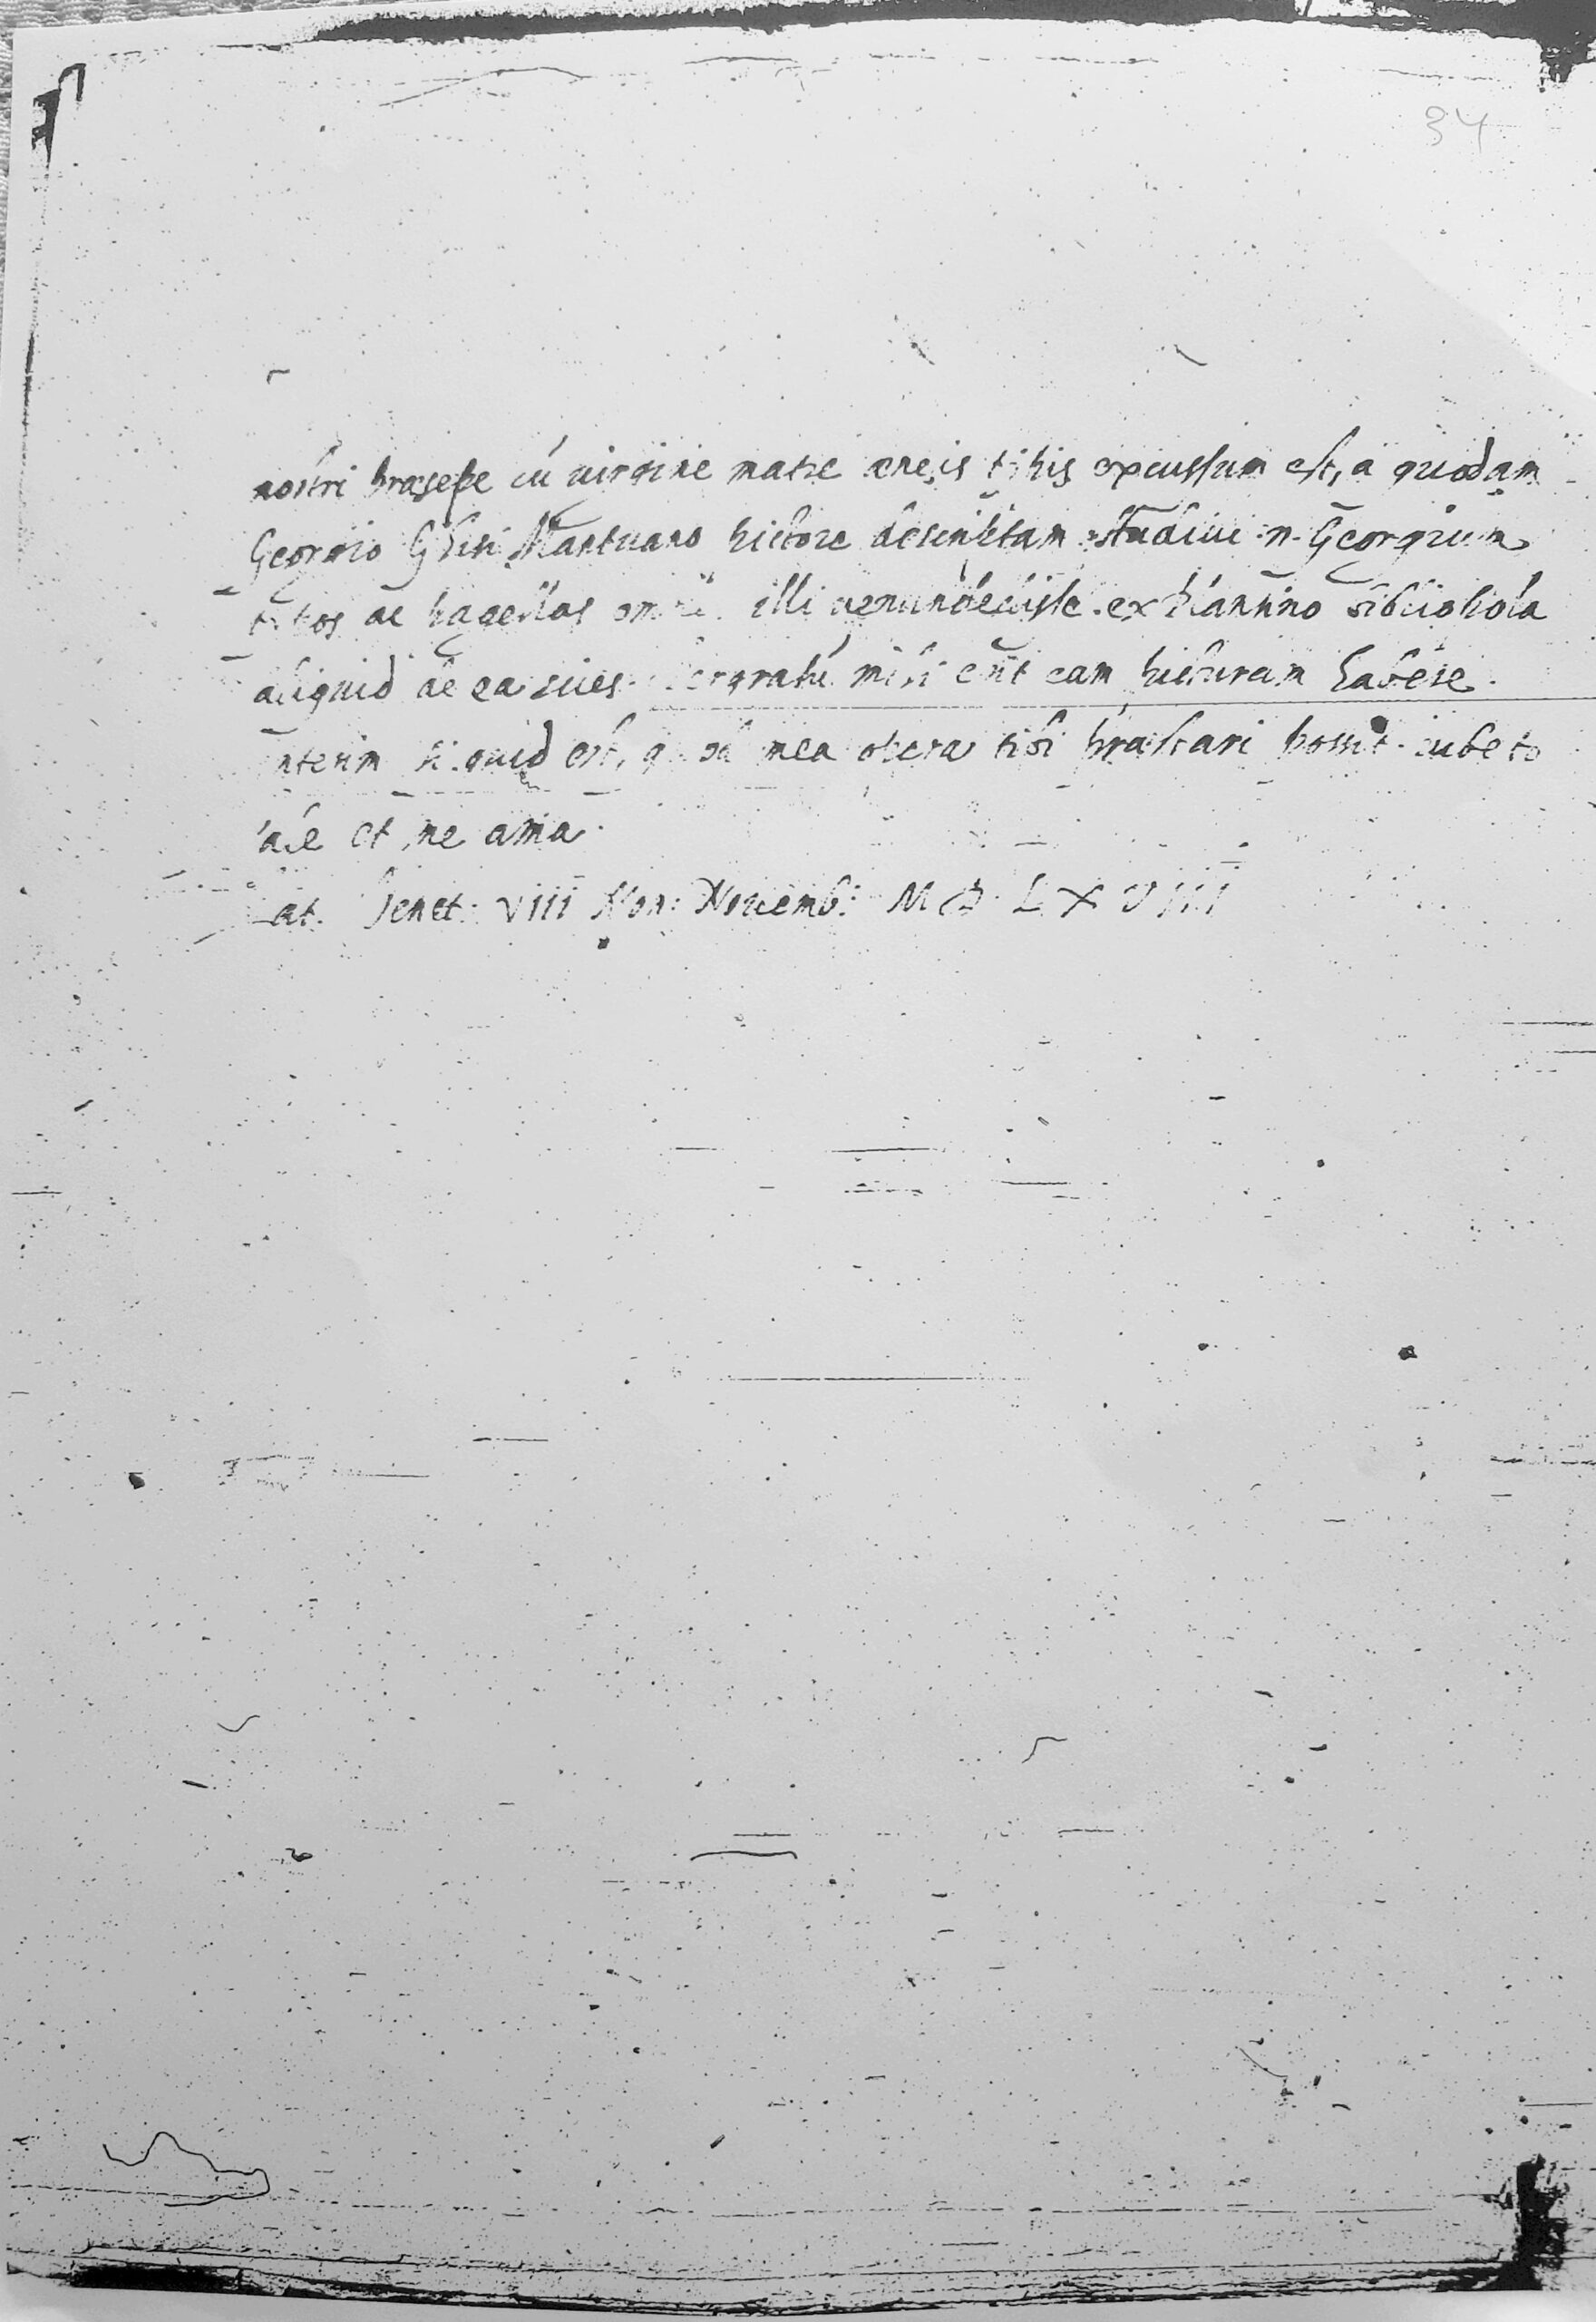 34
nostri præsepe cú uirgine matre æneis tipis excussum est, a quodam
Georgio Ghisi Mantuano pictore descriptam. Audiui .n. Georgium
tipos ac pagellas illi uenundedisse. ex Plantino bibliopola
aliquid de ea re pergratú mihi erit eam picturam habere.
interim si quid est, quod mea opera tibi præstari possit. iubeto
ale et me ama.
at. Venet: VIII Non: Nouemb: M D L X V III